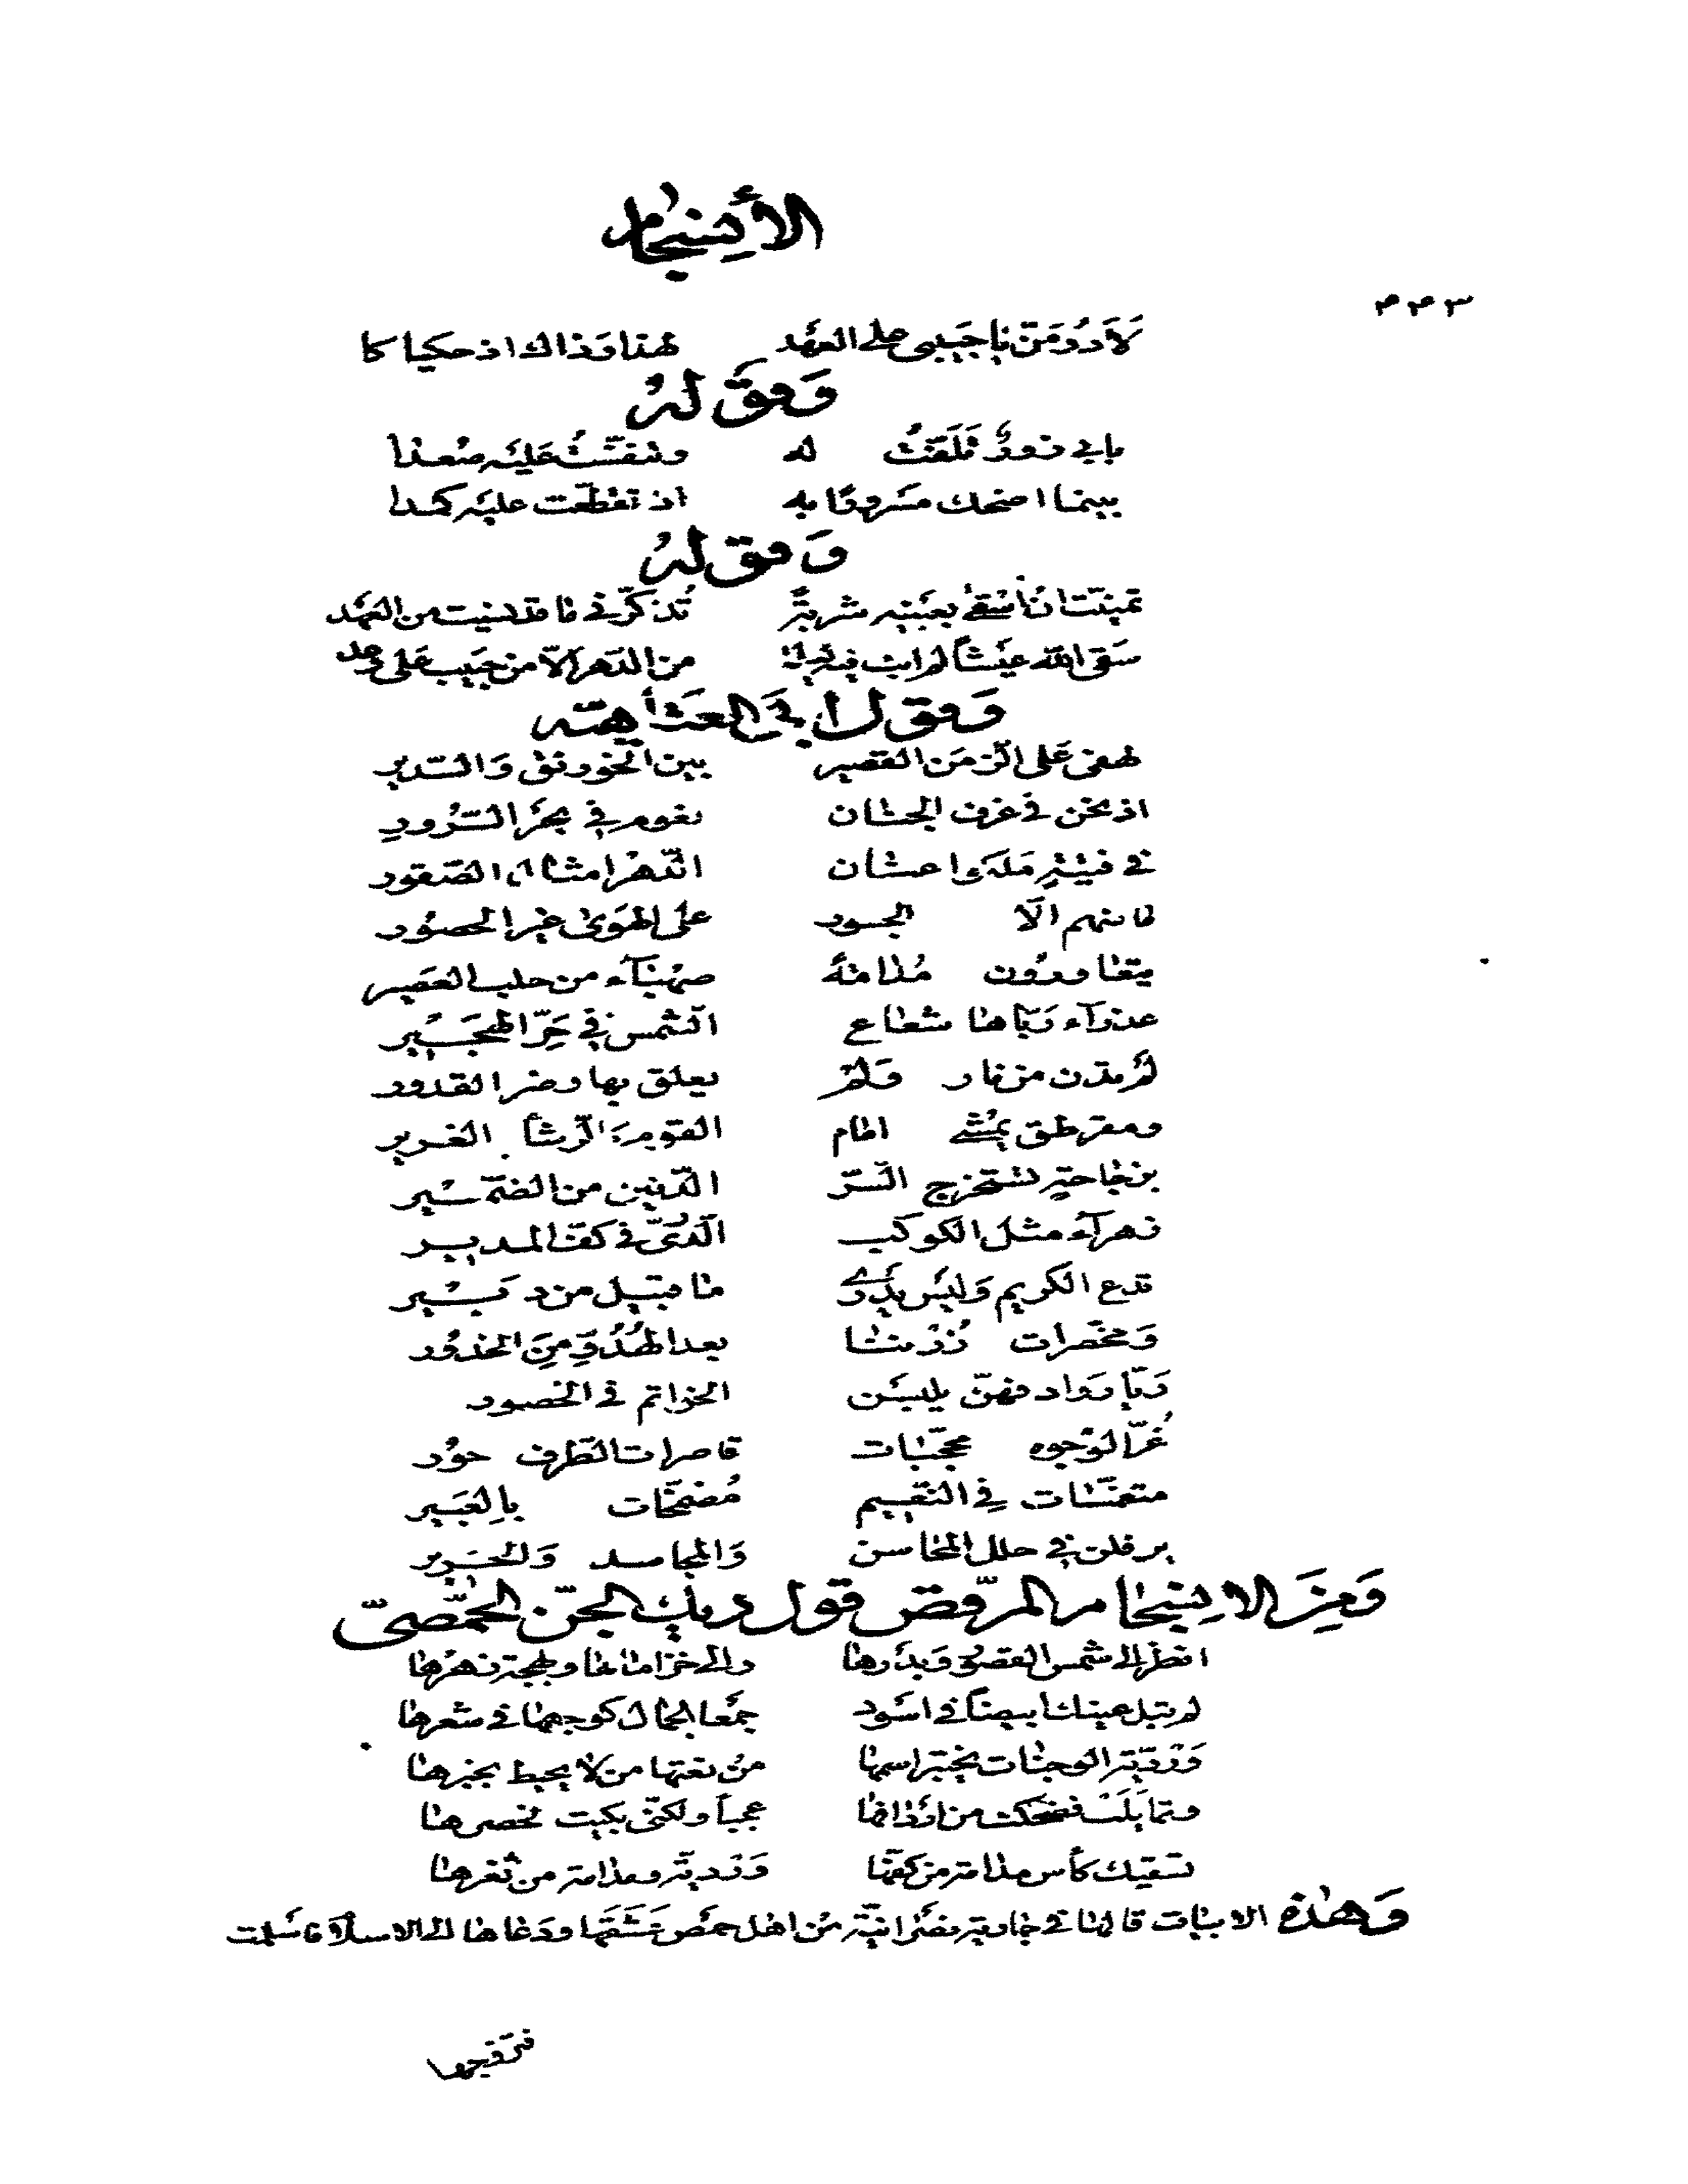 الأنسجام
٣٣٣
لاروم من يا حبيبي على العهد لهذا وذاك اذ حكياكا
وقوله
بابي زور تلفت له وتنفست عليه صعدا
بينما اضحك مسرورا به اذ تقطعت عليه كمدا
وقوله
تمنيت ان اسقى بعينيه شربة تذكرني ما قد نسيت من العهد
سقى الله عيشا لم ابت فيه ليلة من الدهر الا من حبيب على وعد
وقول ابي العتاهيه
لهفي على الزمن القصير بين الخورنق والسدير
اذ نحن في غرف الجنان نعوم في بحر السرور
في فتية ملكوا عنان الدهر امثال الصقور
ما منهم الا الجسور على الهوى غير الحصور
يتعاورون مدامة صهباء من حلب العصير
عذراء رباها شعاع الشمس في حر الهجير
لم تدن من نار ولم يعلق بها وضر القدور
ومقرطق يمشي امام القوم كالرشأ الغرير
بزجاجة تستخرج السر الدفين من الضمير
زهراء مثل الكوكب الدري في كف المدير
تدع الكريم وليس يدري ما قبيل من دبير
ومخصرات زرننا بعد الهدو من الخدور
ريا روادفهن يلبسن الخواتم في الخصور
غر الوجوه محجبات قاصرات الطرف حور
متنعمات في النعيم مضمخات بالعبير
يرفلن في حلل المحاسن والمجاسد والحرير
ومن الانسجام المرقص قول ديك الجن الحمصي
انظر الى شمس القصور وبدرها والى خزاماها وبهجة زهرها
لم تبل عينك ابيضا في اسود جمع الجمال كوجهها في شعرها
وردية الوجنات يختبر اسمها من نعتها من لا يحيط بخبرها
وتمايلت فضحكت من اردافها عجبا ولكني بكيت لخصرها
تسقيك كأس مدامة من كفها وردية ومدامة من ثغرها
وهذه الابيات قالها في جارية نصرانية من اهل حمص عشقها ودعاها الى الاسلام فاسلمت
فتزوجها